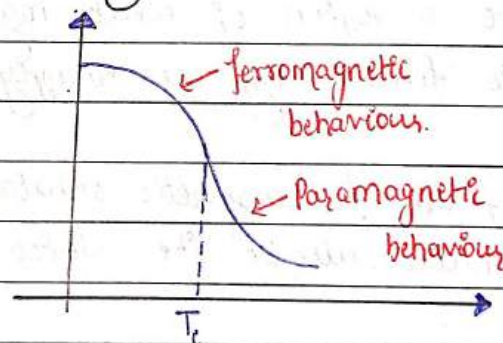 ferromagnetic
behaviour.
Paramagnetic
behaviour
Tc